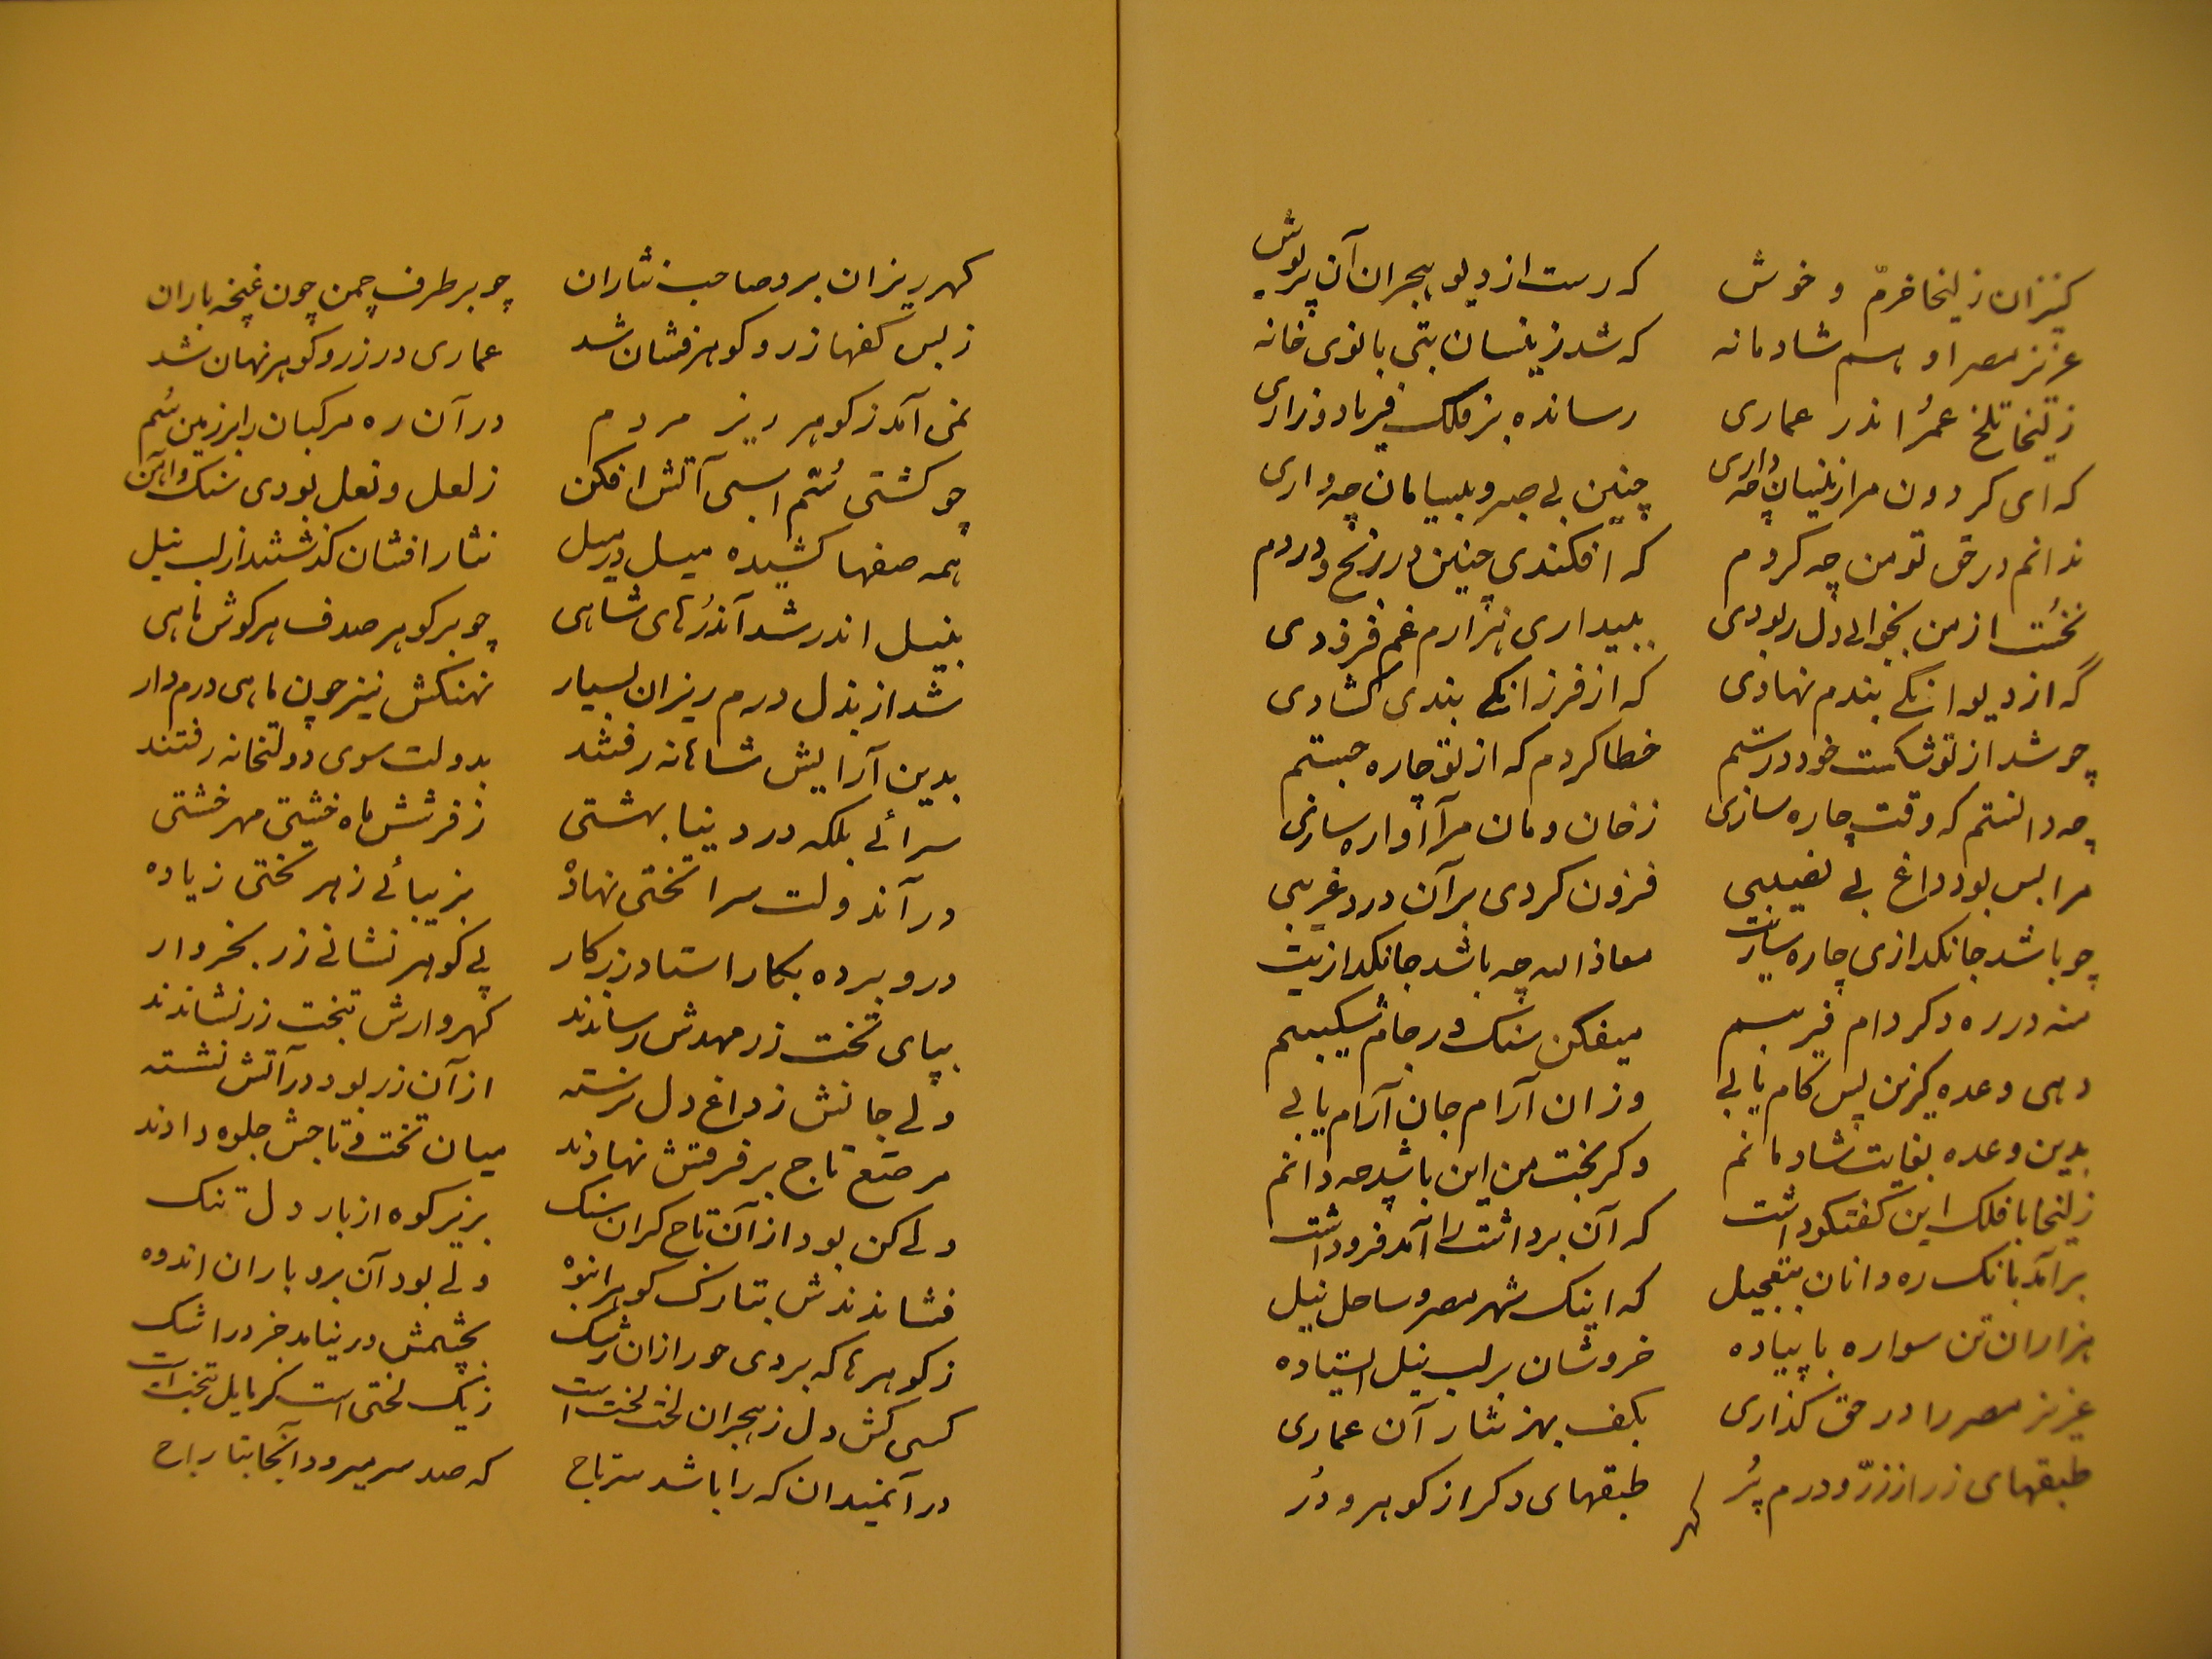 کنیزان زلیخا خرّم و خوش که رست از دیو هجران آن پریوش
عزیز مصر او هم شادمانه که شد زینسان بتی بانوی خانه
زلیخا تلخ عمر اندر عماری رسانده بر فلک فریاد و زاری
که ای کردون مرا زینسان چه داری چنین بی صبر و بیسامان چه داری
ندانم در حق تو من چه کردم که افکندی چنین در رنج و دردم
نخست از من بخوابی دل ربودی ببیداری هزارم غم فزودی
گه از دیوانکی بندم نهادی که از فرزانکی بندی کشادی
چو شد از تو شکست خود درستم خطا کردم که از تو چاره جستم
چه دانستم که وقت چاره سازی ز خان و مان مرا آواره سازی
مرا بس بود داغ بی نصیبی فزون کردی بر آن درد غریبی
چو باشد جانکدازی چاره سازیت معاذ الله چه باشد جانکدازیت
منه در ره دکر دام فریبم میفکن سنک در جام شکیبم
دهی وعده کزین پس کام یابی وزان آرام جان آرام یابی
بدین وعده بغایت شادمانم وکر بخت من این باشد چه دانم
زلیخا با فلک این کفتکو داشت که آن برداشت را آمد فرو داشت
برآمد بانک ره دانان بتعجیل که اینک شهر مصر و ساحل نیل
هزاران تن سواره یا پیاده خروشان بر لب نیل ایستاده
عزیز مصر را در حق کذاری بکف بهر نثار آن عماری
طبقهای زر از زرّ و درم پُر طبقهای دکر از کوهر و دُر
کهر
کهر ریزان برو صاحب نثاران چو بر طرف چمن چون غنچه باران
ز بس کفها زر و کوهر فشان شد عماری در زر و کوهر نهان شد
نمی آمد ز کوهر ریز مردم در آن ره مرکبان را بر زمین سُم
چو کشتی سُم اسبی آتش افکن ز لعل و نعل بودی سنک و آهن
همه صفها کشیده میل در میل نثار افشان کذشتند از لب نیل
بنیل اندر شد آن دُرهای شاهی چو بر کوهر صدف هر کوش ماهی
شد از بذل درم ریزان بسیار نهنکش نیز چون ماهی درم دار
بدین آرایش شاهانه رفتند بدولت سوی دولتخانه رفتند
سرائی بلکه در دنیا بهشتی ز فرشش ماه خشتی مهر خشتی
در آن دولت سرا تختی نهاده بزیبائی ز هر تختی زیاده
درو برده بکار استاد زرکار پی کوهر نشانی زر بخروار
بپای تخت زر مهدش رساندند کهروارش بتخت زر نشاندند
ولی جانش ز داغ دل نرسته از آن زر بود در آتش نشسته
مرصّع تاج بر فرقش نهادند میان تخت و تاجش جلوه دادند
ولیکن بود از آن تاج کران سنک بزیر کوه از بار دل تنک
فشاندندش بتارک کوهر انبوه ولی بود آن برو باران اندوه
ز کوهرها که بردی حور ازان رشک بچشمش در نیامد جز در اشک
کسی کش دل ز هجران لخت لخت است ز یک لختی است کر مایل تخت است
در آن میدان که را باشد سر تاج که صد سر میرود آنجا بتاراج